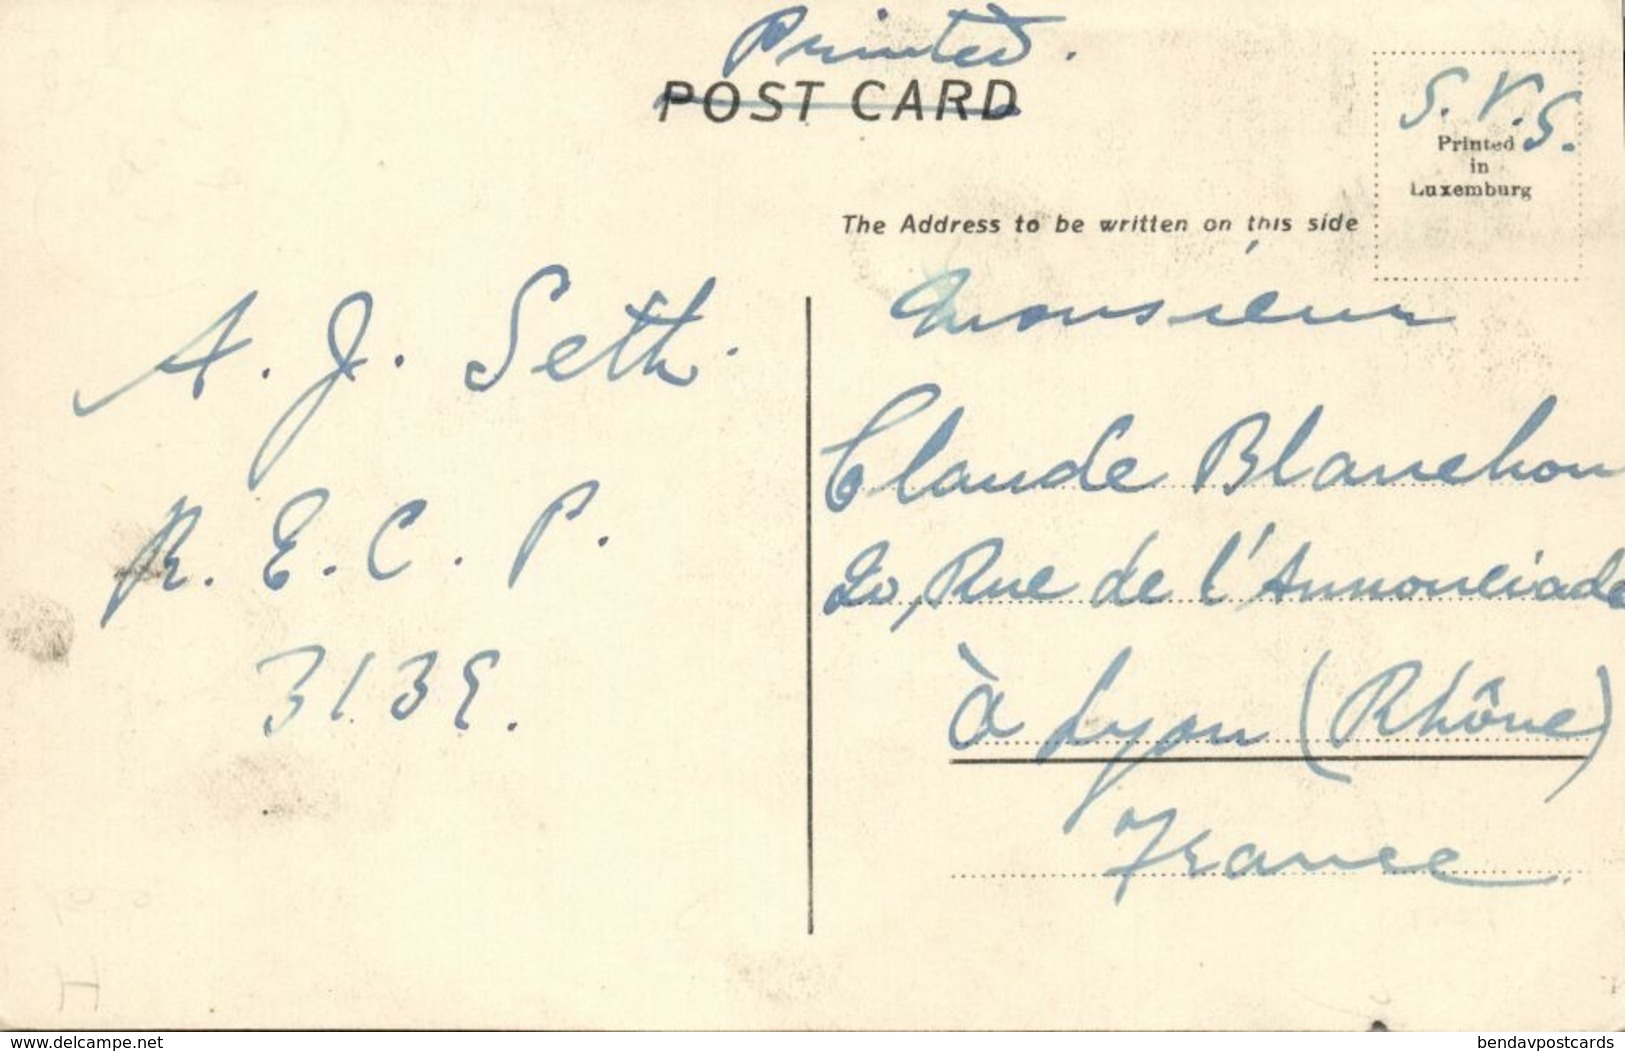 Printed.
POST CARD
S.V.S.
Printed
in
Luxemburg
The Address to be written on this side
A. J. Seth.
R. E. C. P.
3139.
Monsieur
Claude Blanchon
20, Rue de l'Annonciade
à Lyon (Rhône)
France.
H
delcampe.net
bendavpostcards